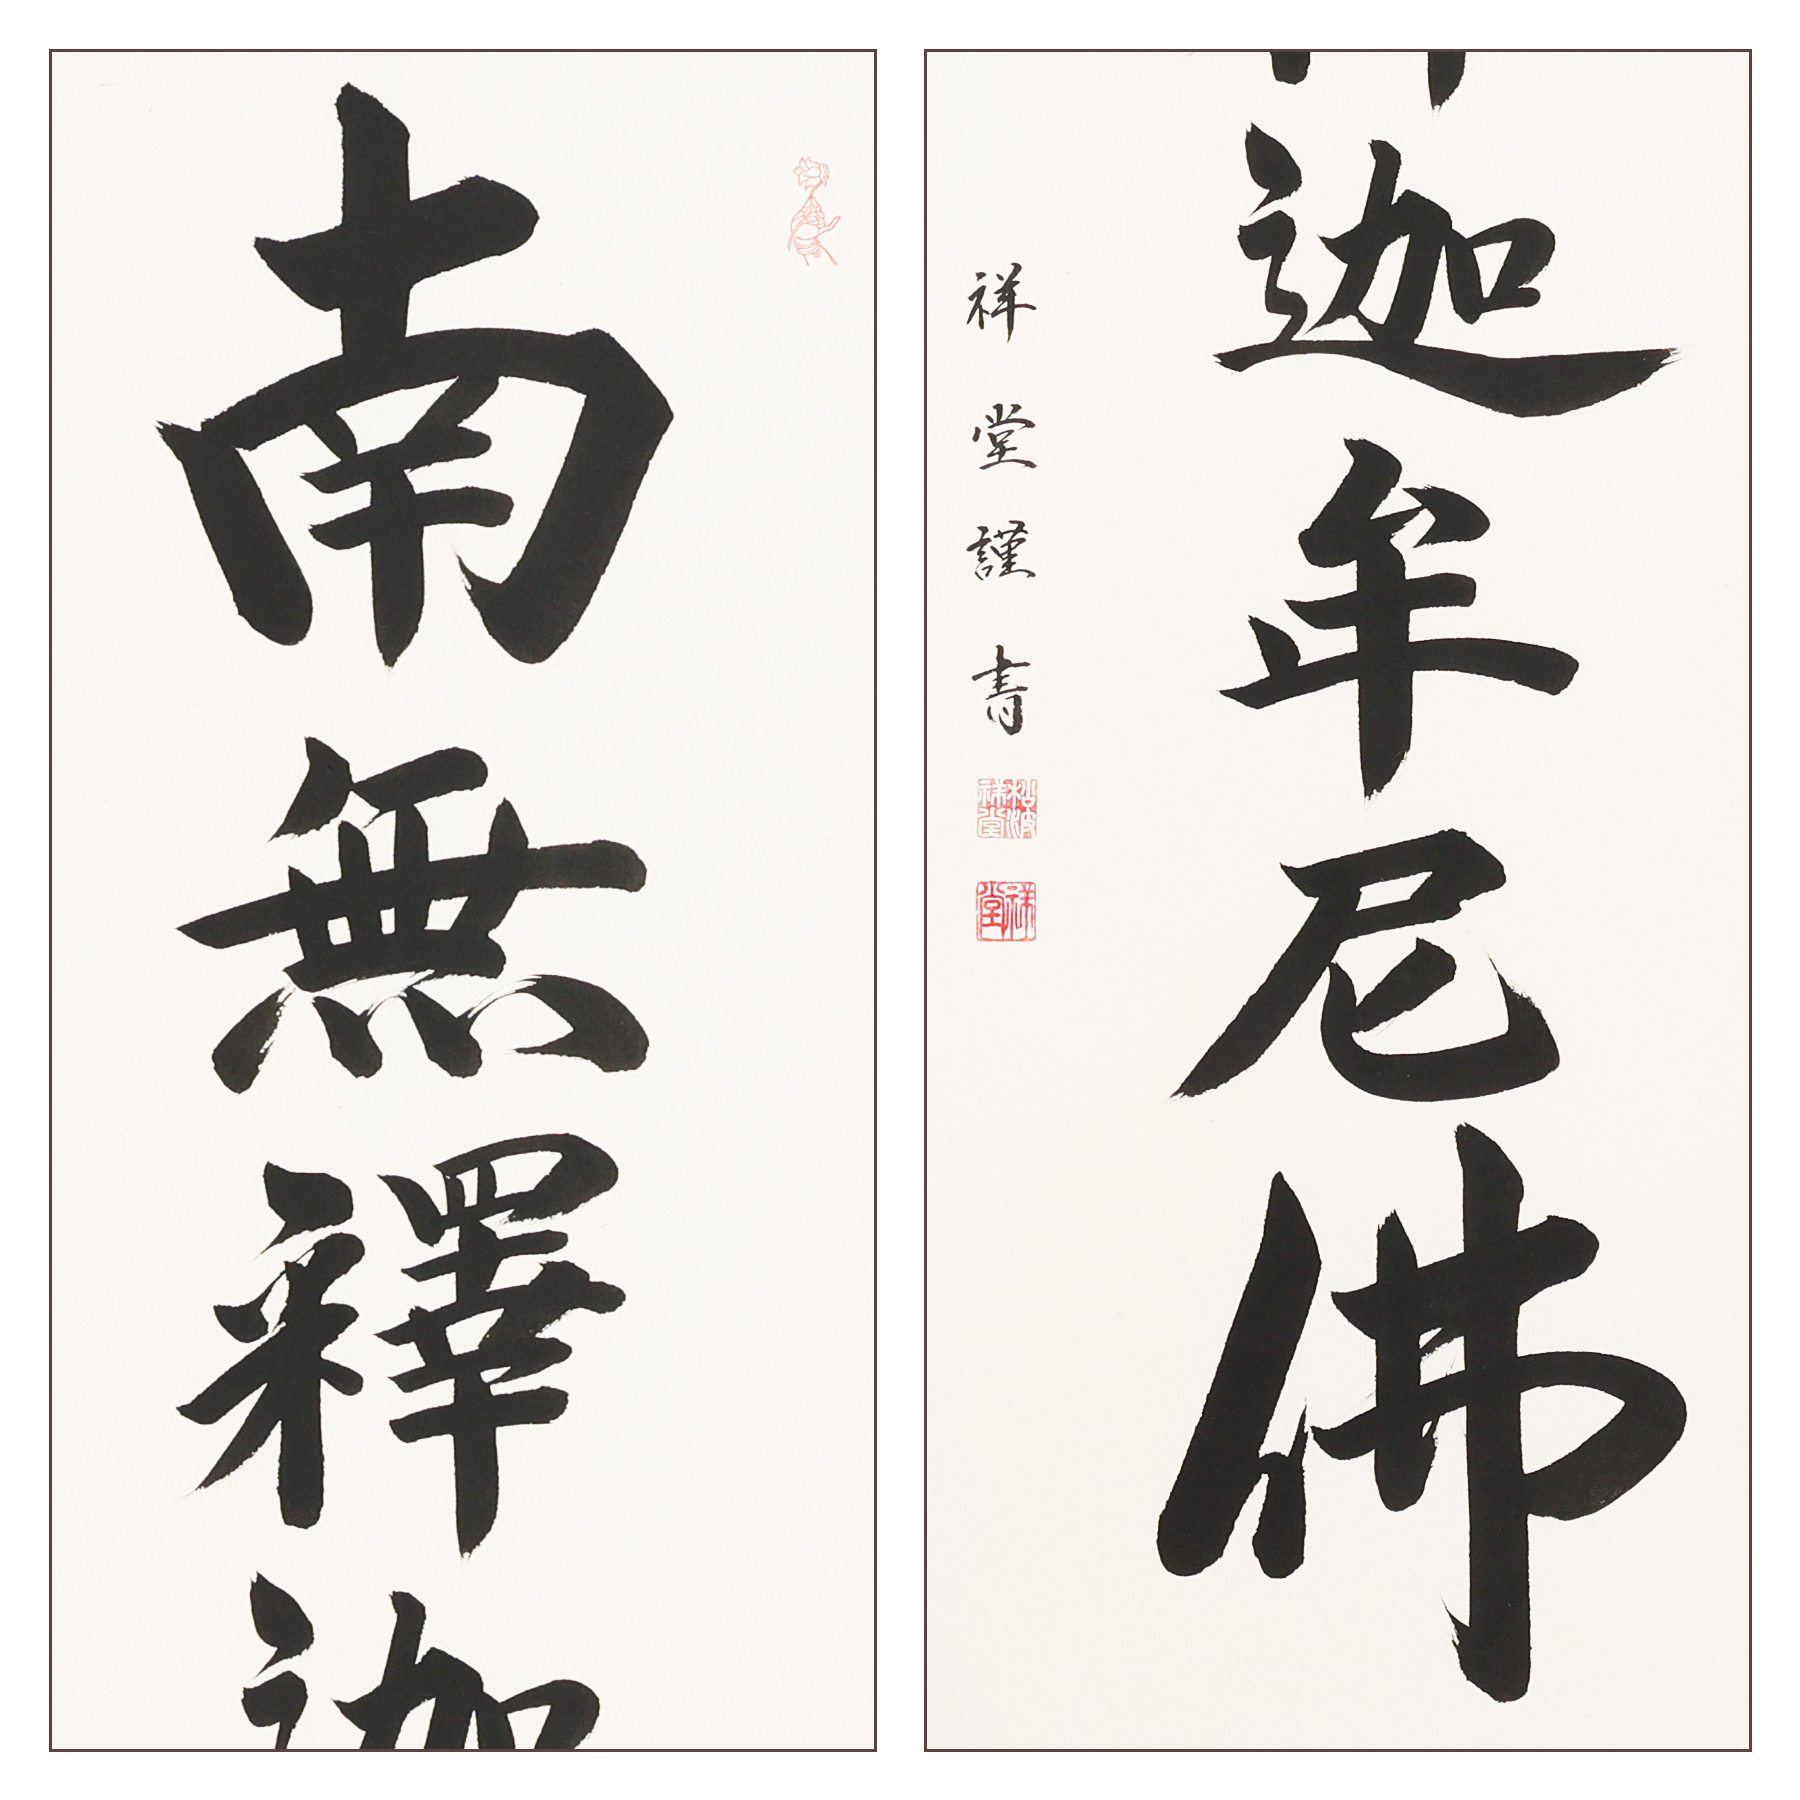 南無釋迦
迦牟尼佛
祥堂謹書
祥堂